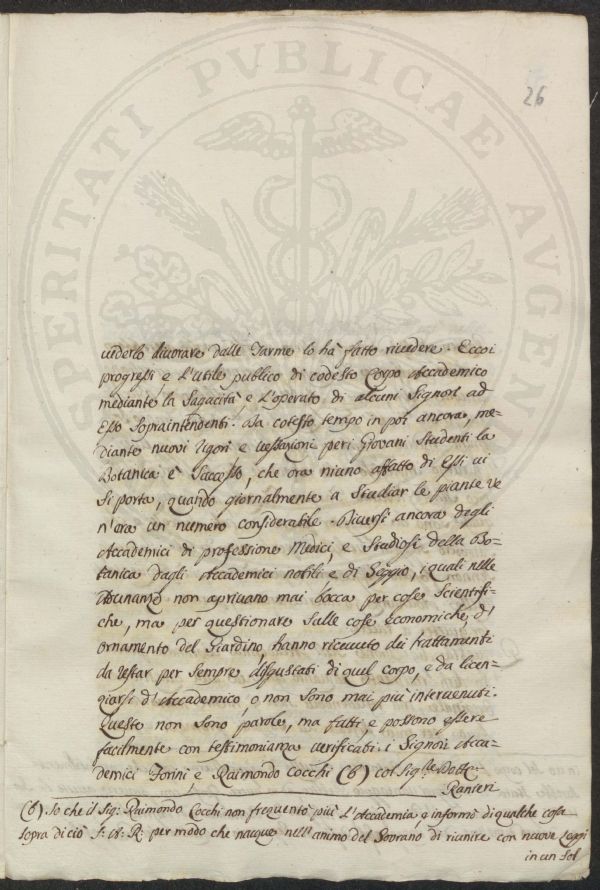 PROSPERITATI PVBLICAE AVGENDAE
26
vederlo divorare dalle Tarme lo hà fatto rivedere. Eccoi
progressi e l'utile publico di codesto Corpo Accademico
mediante la Sagacità e l'operato di alcuni Signori ad
Esso Sopraintendenti. Da cotesto tempo in poi ancora, me-
diante nuovi rigori e vessazioni per i Giovani Studenti la
Botanica è Successo, che ora niuno affatto di Essi vi
si porta, quando giornalmente a Studiar le piante ve
n'era un numero considerabile. Diversi ancora degli
Accademici di professione Medici, e Studiosi della Bo-
tanica dagli Accademici nobili e di Seggio, i quali nelle
Adunanze non aprivano mai bocca per cose Scientifi-
che, ma per questionare Sulle cose economiche, d'
ornamento del Giardino, hanno ricevuto dei trattamenti
da restar per Sempre disgustati di quel corpo, e da licen-
ziarsi d'Accademico, o non Sono mai più intervenuti.
Queste non Sono parole, ma fatti, e possono essere
facilmente con testimonianza verificabi. i Signori Acca-
demici Forini e Raimondo Cocchi (b) col Sig.re Dott.e
Ranieri
(b). So che il Sig: Raimondo Cocchi non frequentò più l'Accademia, e informò di qualche cosa
sopra di ciò S: A: R: per modo che nacque nell'animo del Sovrano di riunire con nuove Leggi
in un Sol